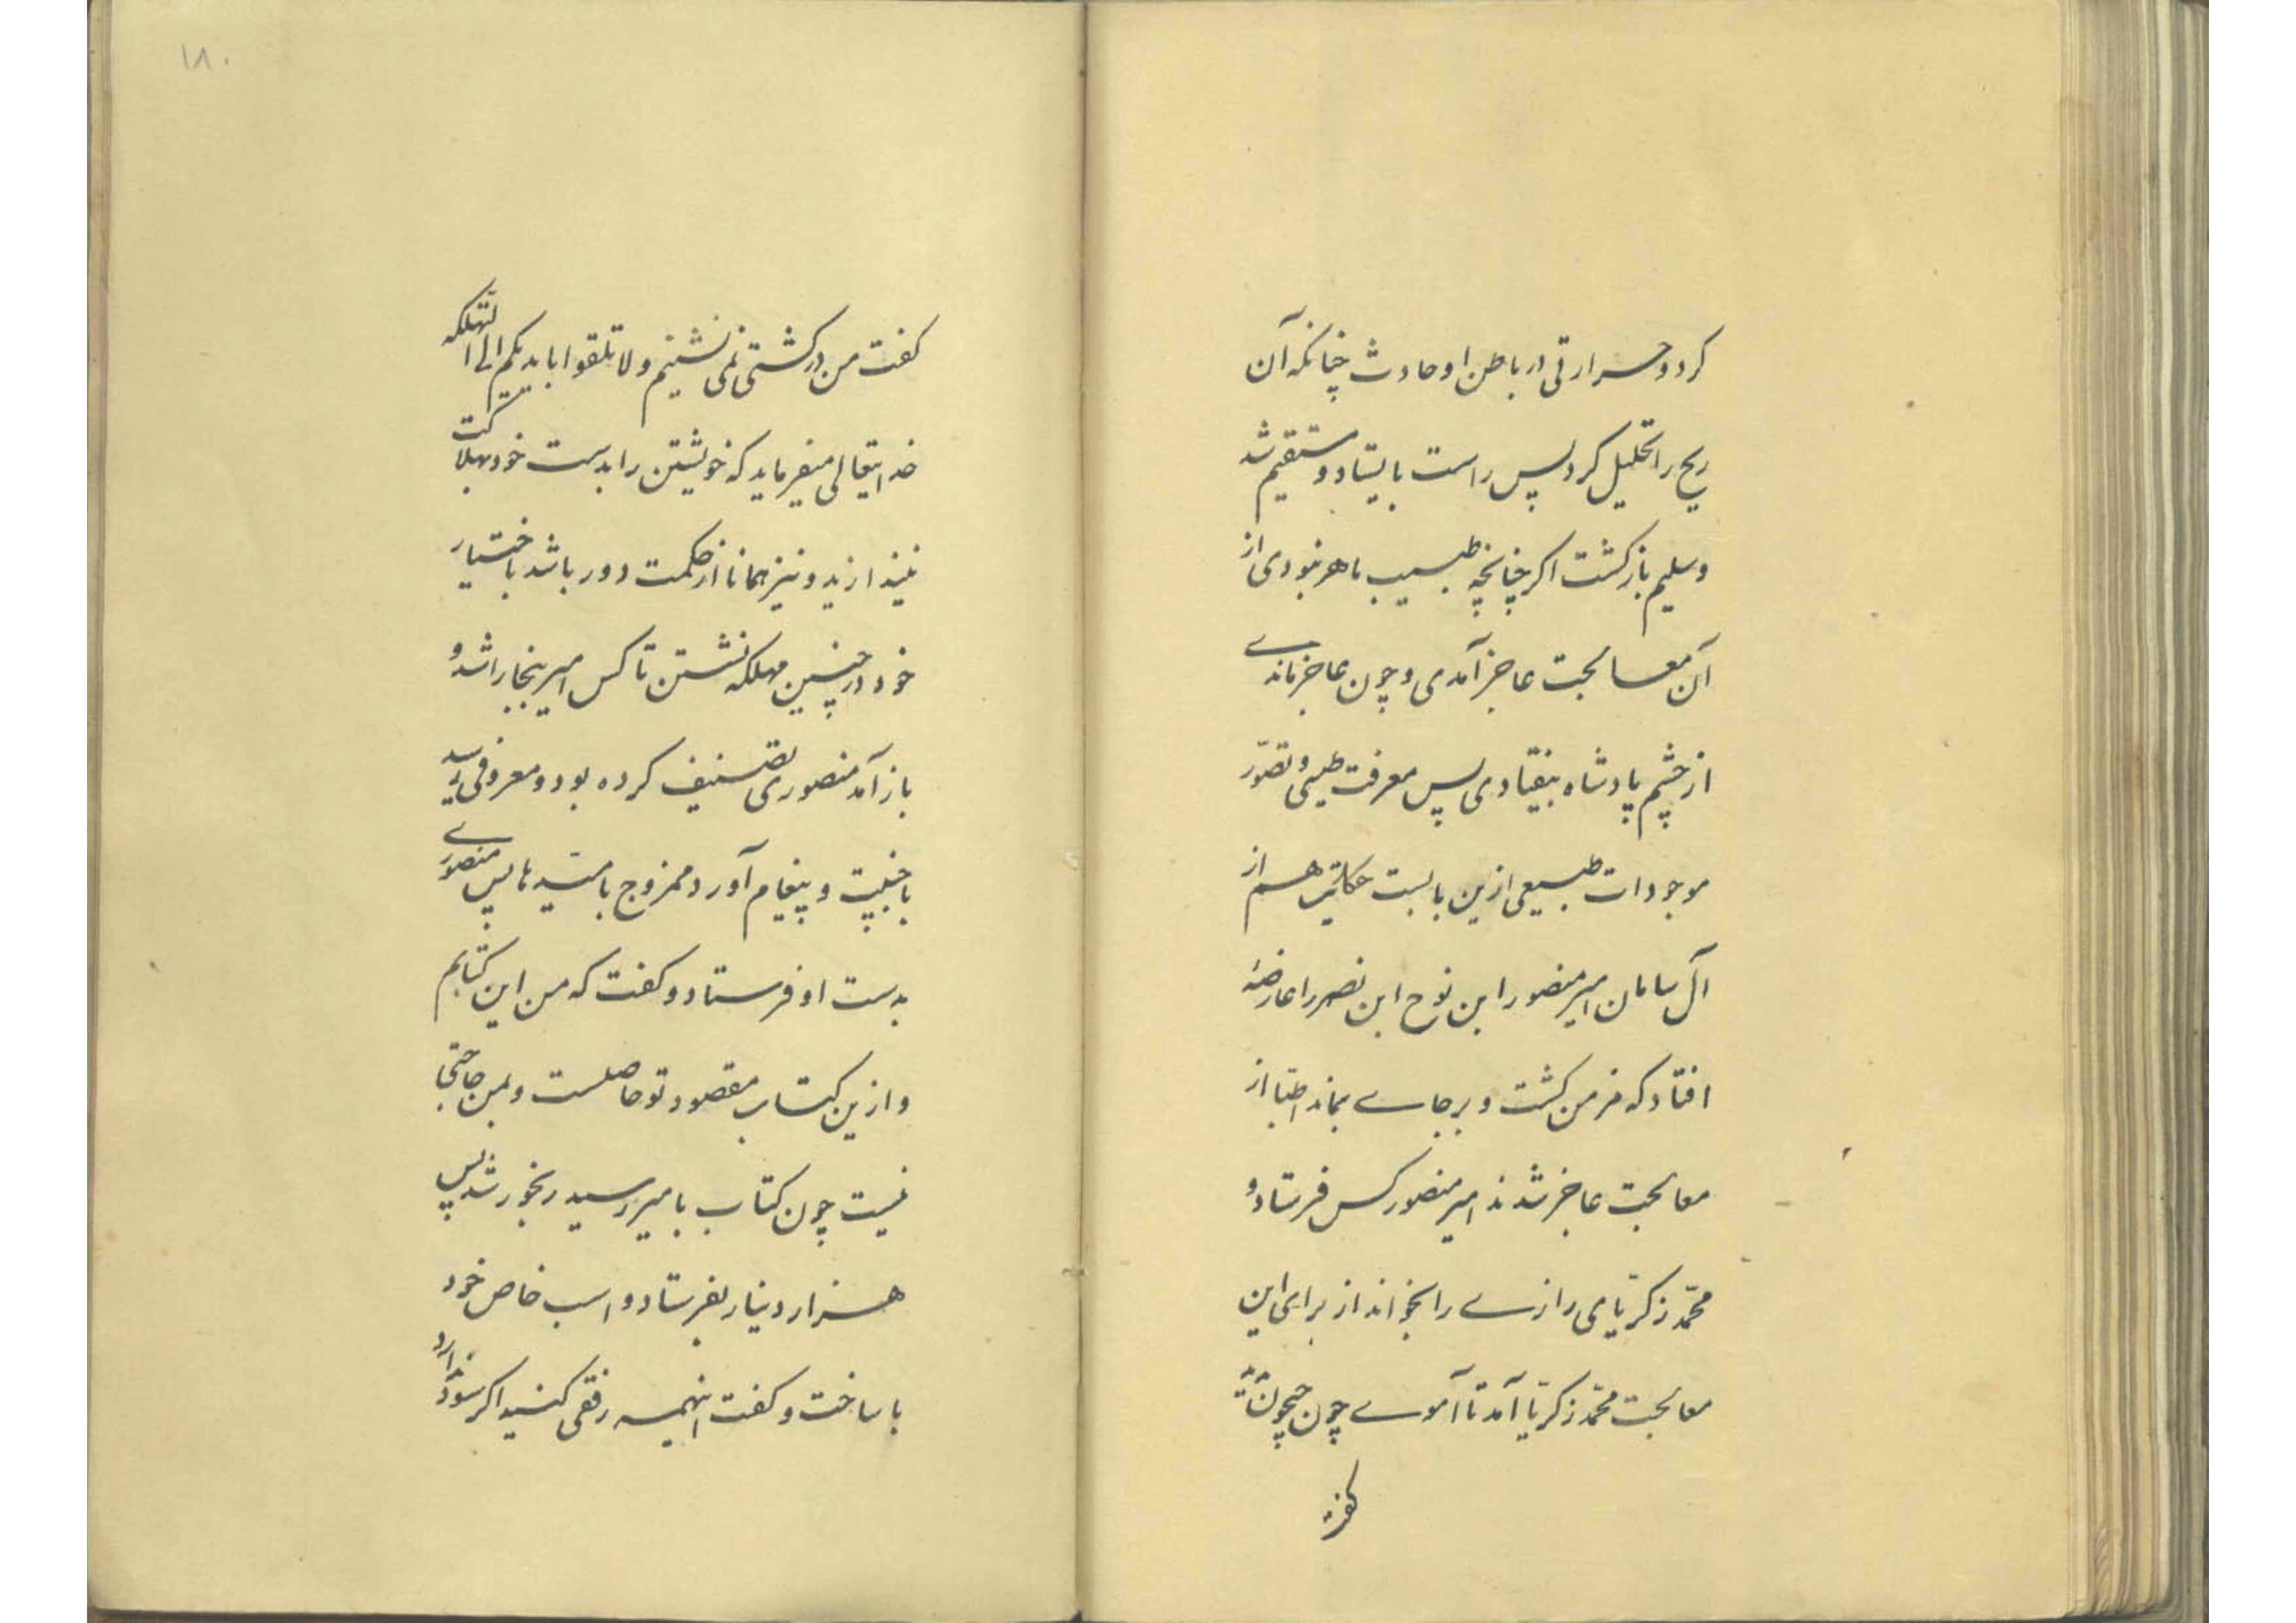 کرد و حرارتی در باطن او حادث چنانکه آن
ریح را تحلیل کرد پس راست بایستاد و مستقیم شد
و سلیم بازگشت اکر چنانچه طبیب ماهر نبودی از
آن معالجت عاجز آمدی و چون عاجز ماندے
از چشم پادشاه بیفتادی پس معرفت طبیعی و تصوّر
موجودات طبیعی ازین بابست حکایت هم از
آل سامان امیر منصور ابن نوح ابن نصر را عارضهٔ
افتاد که مزمن کشت و برجاے بماند اطبا از
معالجت عاجز شدند امیر منصور کس فرستاد و
محمّد زکرّیای رازے را بخواند از برای این
معالجت محمّد زکرّیا آمد تا آموے چون جیحون
کفت
۱۸۰
کفت من در کشتی نمی نشینم و لا تلقوا بایدیکم الی التّهلکه
خدایتعالی میفرماید که خویشتن را بدست خود بهلاکت
نیندازید و نیز همانا از حکمت دور باشد باختیار
خود در چنین مهلکه نشستن تا کس امیر ببخارا شد و
باز آمد منصوری تصنیف کرده بود و معروفی رسید
با جنیبت و پیغام آورد ممزوج بامیدها پس منصورے
بدست او فرستاد و کفت که من این کتابم
و ازین کتاب مقصود تو حاصلست و بمن حاجتی
نیست چون کتاب بامیر رسید رنجور شد پس
هزار دینار بفرستاد و اسب خاص خود
با ساخت و کفت اینهمه رفقی کنید اکر سود ندارد